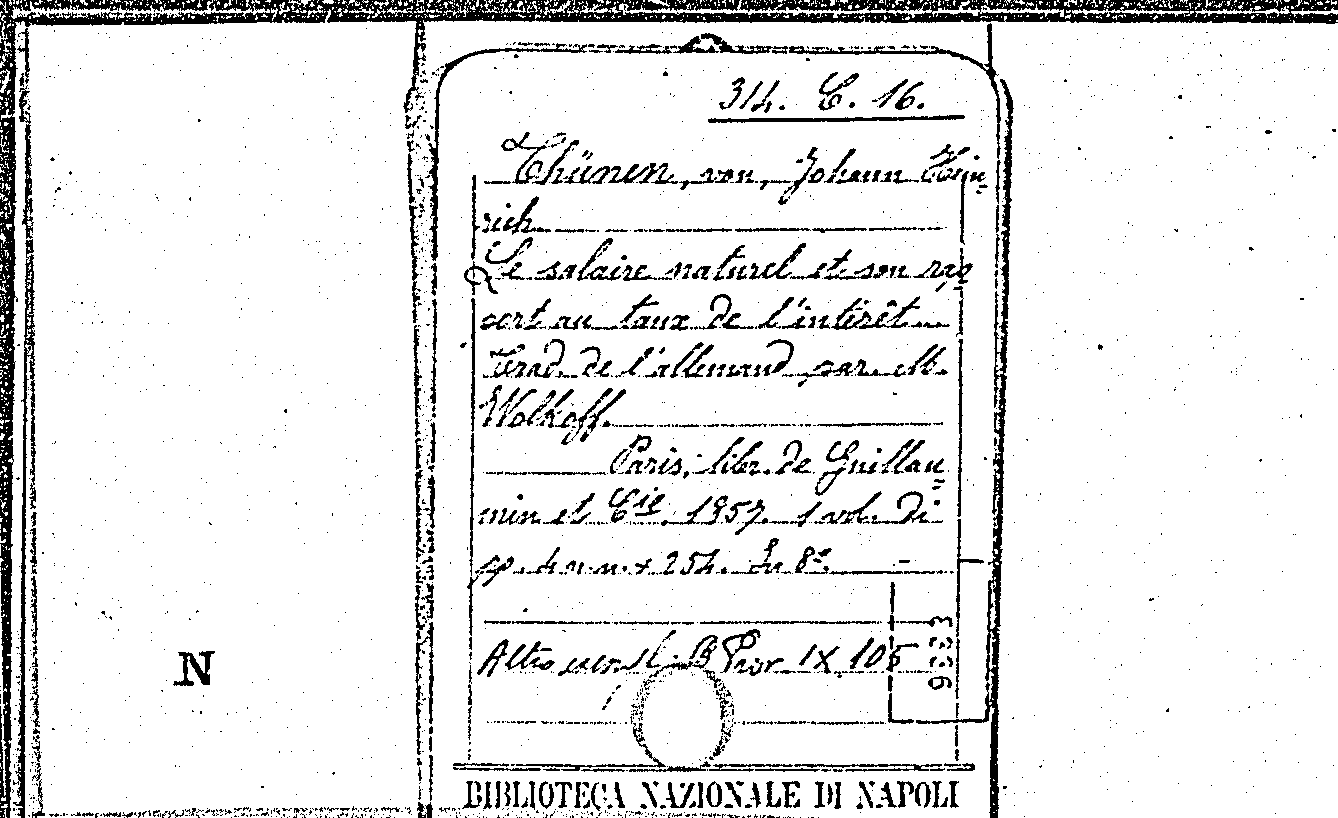 314. C. 16.
Thünen, von, Johann Hein
rich
Le salaire naturel et son rap
port au taux de l'intérêt...
Trad. de l'allemand par M.
Wolkoff.
Paris, libr. de Guillau
min et Cie. 1857. 1 vol. di
pp. 4 n.n. + 254. In 8°.
Altro esempl: B Prov IX 105
9333
N
BIBLIOTECA NAZIONALE DI NAPOLI